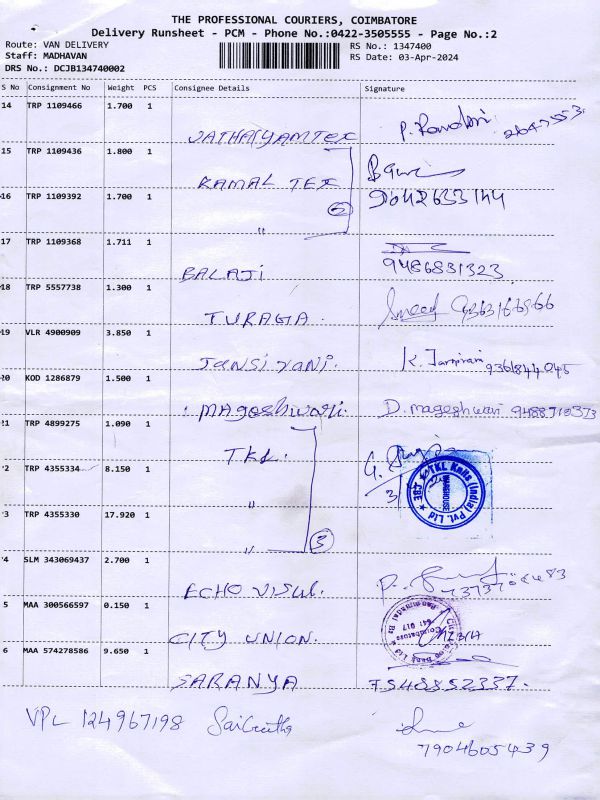 THE PROFESSIONAL COURIERS, COIMBATORE
Delivery Runsheet - PCM - Phone No.:0422-3505555 - Page No.:2
Route: VAN DELIVERY
RS No.: 1347400
Staff: MADHAVAN
RS Date: 03-Apr-2024
DRS No.: DCJB134740002
S No Consignment No Weight PCS Consignee Details Signature
14 TRP 1109466 1.700 1
15 TRP 1109436 1.800 1 RAMAL TEX
16 TRP 1109392 1.700 1 " 2 9042633144
17 TRP 1109368 1.711 1 BALAJI 9486831323
18 TRP 5557738 1.300 1 TURAGA.
19 VLR 4900909 3.850 1 JANSI RANI. 9361844045
20 KOD 1286879 1.500 1 MAGESHWARI. D. mageshwari 9488710373
21 TRP 4899275 1.090 1 TKL.
22 TRP 4355334 8.150 1 " 3
TKL Knits (India) Pvt. Ltd
WAREHOUSE
CBE
3 TRP 4355330 17.920 1 " 3
4 SLM 343069437 2.700 1 ECHO VISUL.
5 MAA 300566597 0.150 1 CITY UNION.
Coimbatore
641 017
6 MAA 574278586 9.650 1 SARANYA 7548852337.
VPL 124967198
7904605439